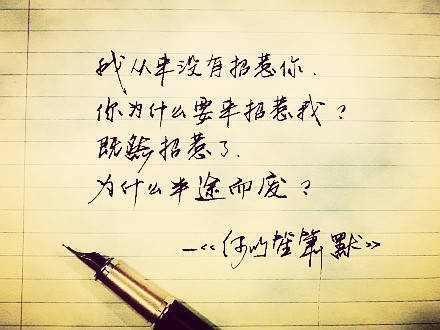 我从来没有招惹你.
你为什么要来招惹我？
既然招惹了.
为什么半途而废？
—《何以笙箫默》